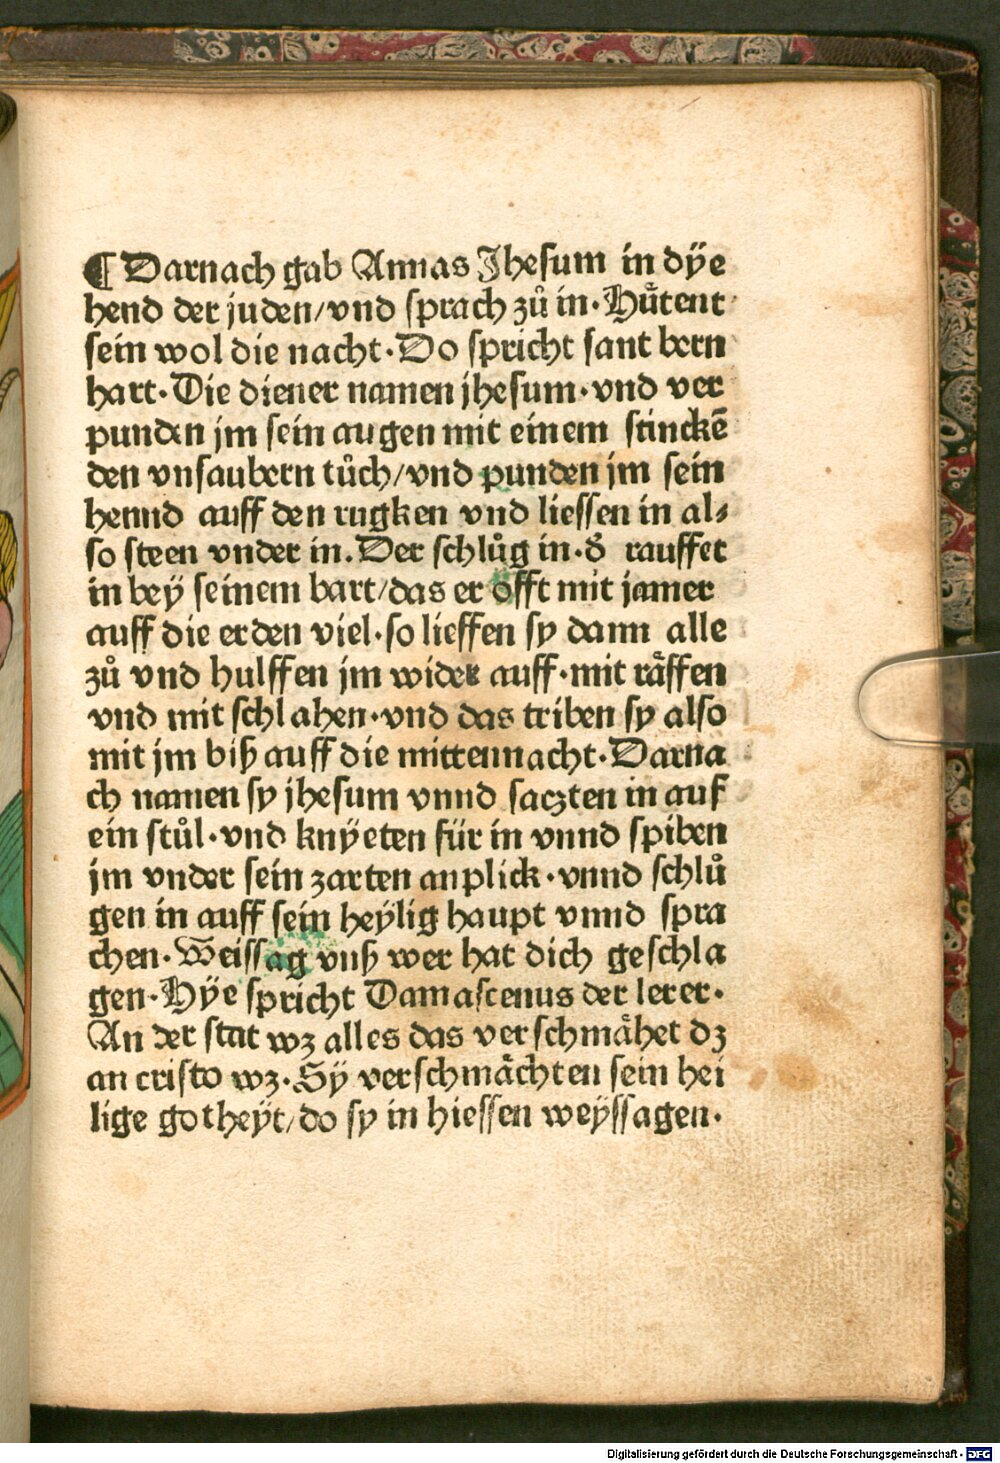 ¶ Darnach gab Annas Jhesum in dÿe
hend der juden/vnd sprach zů in·Hu̇tent
sein wol die nacht·Do spricht sant bern
hart·Die diener namen jhesum·vnd ver
punden jm sein augen mit einem stinckē
den vnsaubern tůch/vnd punden jm sein
hennd auff den rugken vnd liessen in al⸗
so steen vnder in.Der schlůg in·d̕ rauffet
in beÿ seinem bart/das er offt mit jamer
auff die erden viel·so lieffen sy dann alle
zů vnd hulffen jm wider auff·mit rȧffen
vnd mit schlahen·vnd das triben sy also
mit jm biß auff die mittennacht·Darna
ch namen sy jhesum vnnd saczten in auf
ein stůl·vnd knÿeten für in vnnd spiben
jm vnder sein zarten anplick·vnnd schlů
gen in auff sein heÿlig haupt vnnd spra
chen·Weissag vnß wer hat dich geschla
gen·Hÿe spricht Damascenus der lerer·
An der stat wz alles das verschmȧhet dz
an cristo wz·Sÿ verschmȧchten sein hei
lige gotheÿt/do sy in hiessen weÿssagen·
Digitalisierung gefördert durch die Deutsche Forschungsgemeinschaft - DFG